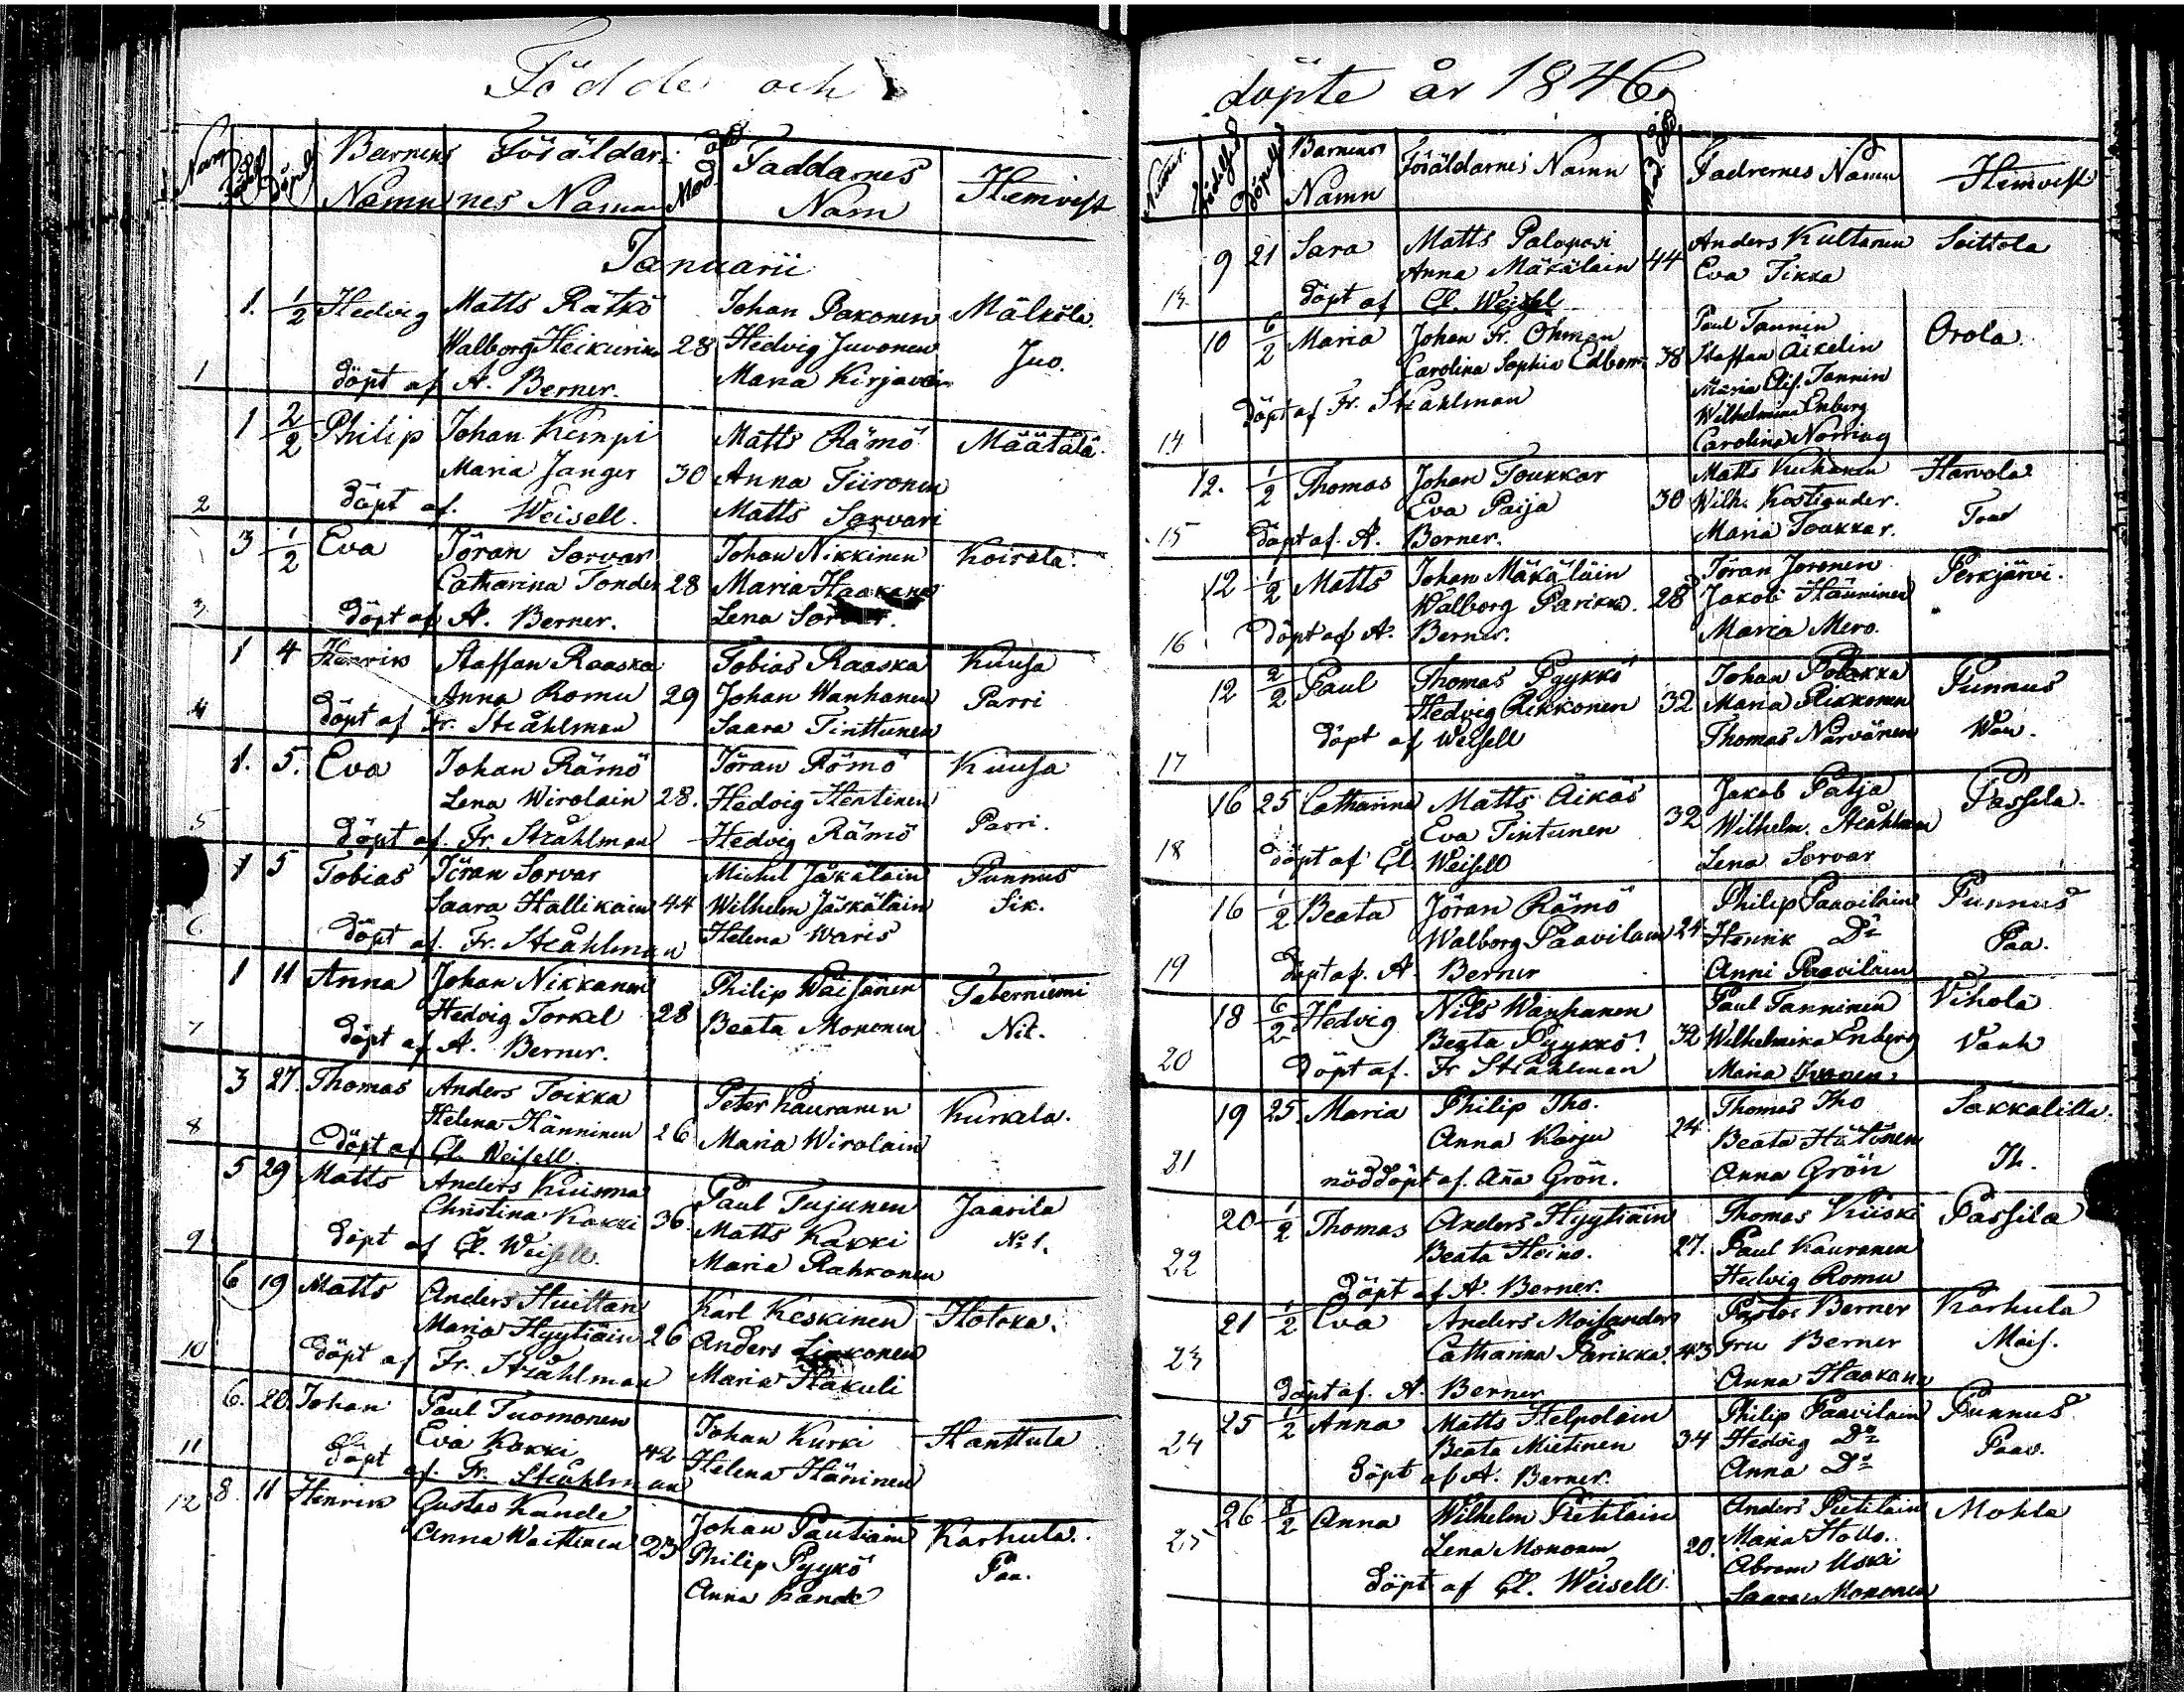 Födde och
Num Födel Döpels Barnens Namn Föräldarnes Namn Mod. åld Faddarnes Namn Hemvist
Januarii
1. 1/2 Hedvig Matts Rätkö Johan Pakonen Mälkölä
Walborg Heikurinen 28 Hedvig Juvonen Juo.
1 döpt af A. Berner. Maria Kirjavain
1 2/2 Philip Johan Kempi Matts Rämö Määtälä.
Maria Janger 30 Anna Tiironen
2 döpt af. Weisell. Matts Sarvari
3 1/2 Eva Jöran Sorvar Johan Nikkinen Koirala.
Catharina Tonder 28 Maria Haakana
3 döpt af A. Berner. Lena Sorvar.
1 4 Henrik Staffan Raaska Tobias Raaska Kuusa
Anna Romu 29 Johan Wanhanen Parri
4 döpt af Fr. Stråhlman Saara Tinttunen
1. 5. Eva Johan Rämö Jöran Rämö Kuusa
Lena Wirolain 28. Hedvig Hentinen
5 döpt af. Fr. Stråhlman Hedvig Rämö Parri.
1 5 Tobias Jöran Sorvar Michel Jäskäläin Punnus
Saara Hallikain 44 Wilhelm Jäskäläin Sik.
6 döpt af. Fr. Stråhlman Helena Waris
1 11 Anna Johan Nikkanen Philip Wäisänen Taberniemi
Hedvig Torkel 28 Beata Mononen Nik.
7 döpt af A. Berner.
3 27. Thomas Anders Toikka Peter Kauranen Kurkela.
Helena Hänninen 26 Maria Wirolain
8 döpt af Cl. Weisell
5 29 Matts Anders Kuisma Paul Tujunen Jaarila
Christina Kakki 36. Matts Kakki No 1.
9 döpt af Cl. Weisell. Maria Rahkonen
6 19 Matts Anders Huittan Karl Keskinen Hotoka.
Maria Hyytiäin 26 Anders Liukonen
10 döpt af Fr. Stråhlman Maria Hakuli
6. 20. Johan Paul Tuomonen Johan Kurki Hanttula
Eva Kakki 42 Helena Häninen
11 döpt af. Fr. Stråhlman
12 8. 11 Henrik Gustav Kande Johan Pautiain Karhula.
Anna Waittinen 23 Philip Pyykö Paa.
Anna Kande
döpte år 1846
Numer. Födelsed Döpelsed Barnens Namn Föräldarnes Namn Mod. åld Fadrernes Namn Hemvist
9 21 Sara Matts Paloposi Anders Kultanen Soittola
Anna Mäkäläin 44 Eva Tikka
13. döpt af Cl. Weisel
10 6/2 Maria Johan Fr. Öhman Paul Tannin Orola
Carolina Sophia Edbom 38 Staffan Äikelin
Maria Elis. Tannin
döpt af Fr. Stråhlman Wilhelmina Enberg
14 Carolina Norring
12. 1/2 Thomas Johan Toukkar Matts Kuhanen Harvola
Eva Paija 30 Wilh. Kostiander.
15 döpt af. A. Berner. Maria Toukkar. Tou
12 1/2 Matts Johan Mäkäläin Jöran Joronen Perkjärvi.
Walborg Parikka. 28 Jakob Hänninen "
16 döpt af A. Berner. Maria Mero.
12 2/2 Paul Thomas Pyykkö Johan Polakka Punnus
Hedvig Rikkonen 32 Maria Rikkonen
17 döpt af Weisell Thomas Narvänen Wan.
16 25 Catharina Matts Äikäs Jakob Patja Passila.
Eva Tintunen 32 Wilhelm. Stråhlman
18 döpt af Cl. Weisell Lena Sorvar
16 1/2 Beata Jöran Rämö Philip Paavilain Punnus
Walborg Paavilain 24 Henrik Do Paa.
19 döpt af. A. Berner Anni Paavilain
18 6/2 Hedvig Nils Wanhanen Paul Tanninen Vihola
Beata Pyykkö. 32 Wilhelmina Enberg Vanh
20 döpt af. Fr Stråhlman Maria Ivonen
19 25. Maria Philip Iho. Thomas Iho Sakkalilla.
Anna Karju 24 Beata Hätönen
21 nöddöpt af. Aña Grön. Anna Grön Ih.
20 1/2 Thomas Anders Hyytiäin Thomas Kiiski Passila
Beata Heino. 27. Paul Kauranen
22 döpt af A. Berner. Hedvig Romu
21 1/2 Eva Anders Moisander Pastor Berner Karhula
Catharina Parikka. 43 Fru Berner Mois.
23 döpt af. A. Berner Anna Haakana
25 1/2 Anna Matts Helpoläin Philip Paavilain Punnus
24 Beata Mietinen 34 Hedvig Do Paav.
döpt af A. Berner. Anna Do
26 8/2 Anna Wilhelm Pietiläin Anders Pietiläin Mohla
25 Lena Mononen 20. Maria Hollo.
döpt af Cl. Weisell. Abram Uski
Saara Mononen